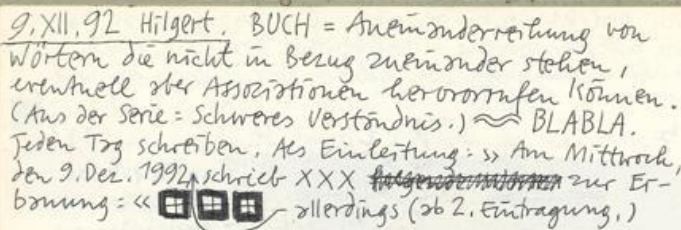 9. XII. 92 Hilgert. BUCH = Aneinanderreihung von
Wörtern die nicht in Bezug zueinander stehen,
eventuell aber Assoziationen hervorrufen können.
(Aus der Serie: Schweres Verständnis.) ≈ BLABLA.
Jeden Tag schreiben. Als Einleitung: » Am Mittwoch,
den 9. Dez. 1992, schrieb XXX zur Er-
bauung: « allerdings (ab 2. Eintragung.)